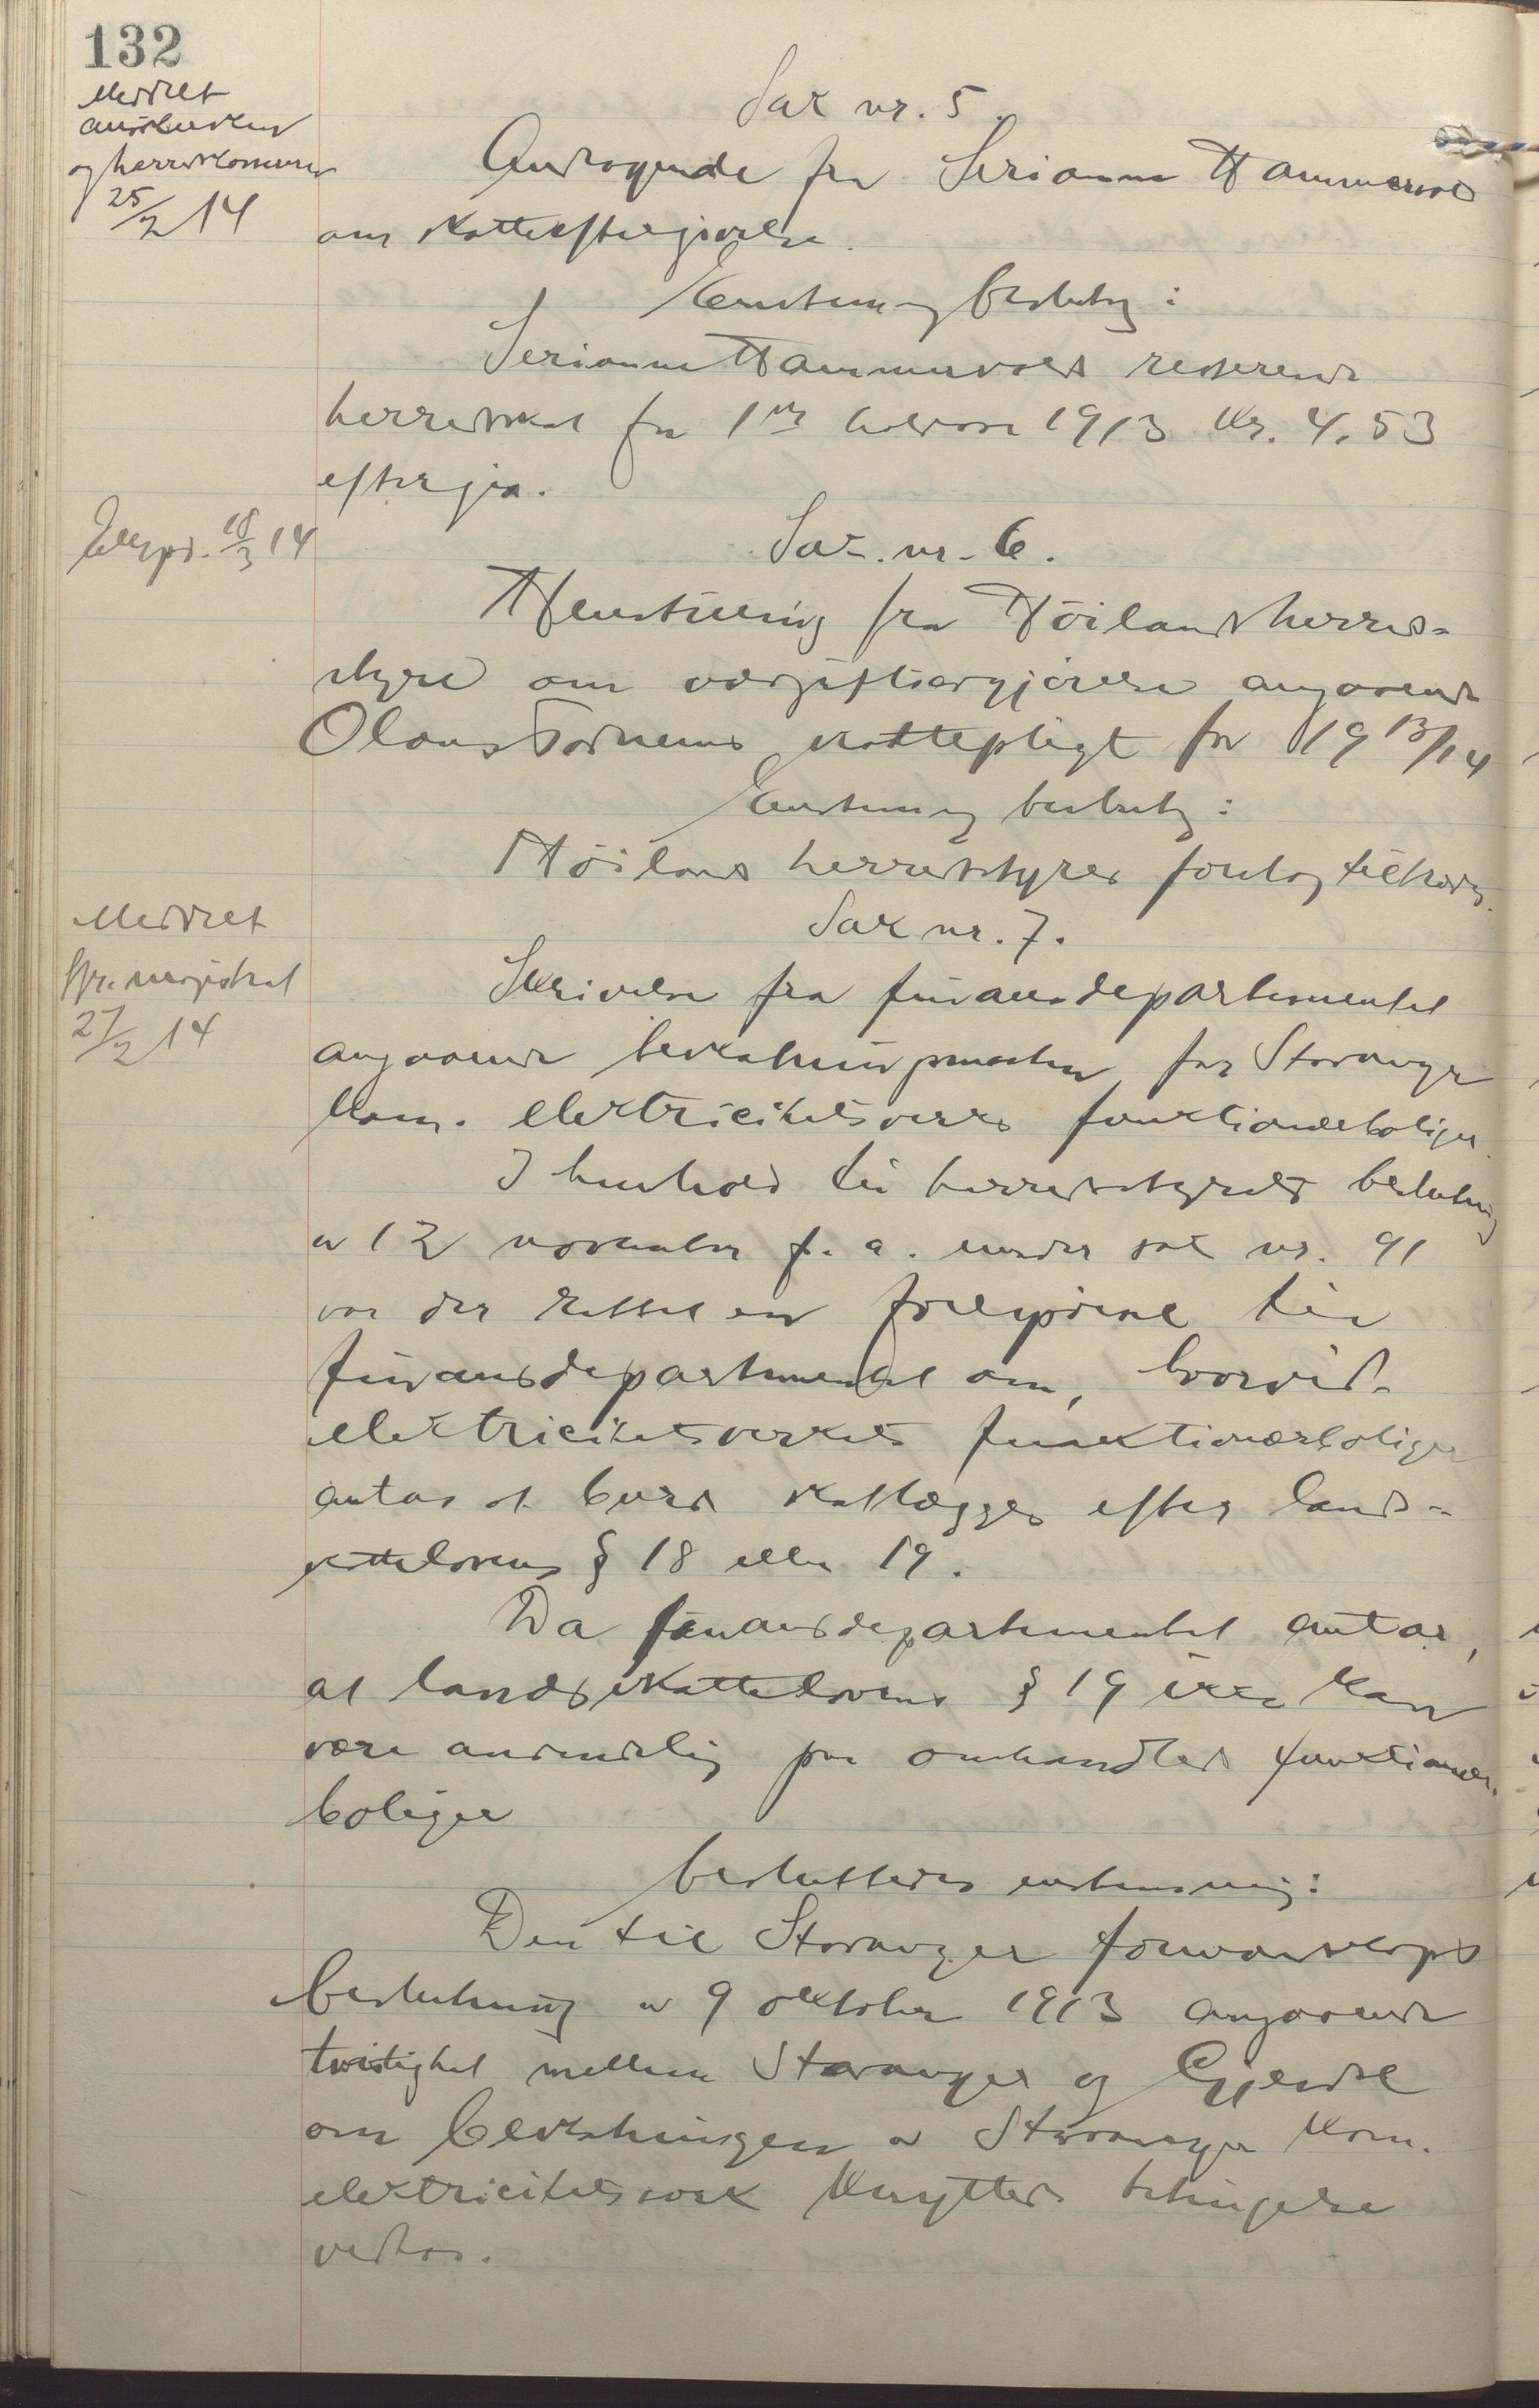 132
Meddelt
ansøkeren
og herredskasserer
25/2 14
Sak nr. 5.
Andragende fra Serianne Hammervold
om skatteeftergivelse.
Enstemmig beslutning:
Serianne Hammervolds resterende
herredsskat for 1ste halvaar 1913 kr. 4.53
eftergis.
Exspd. 18/3 14
Sak nr. 6.
Henstilling fra Höiland herreds-
styre om avgjørelse angaaende
Olaus skattepligt for 1913/14
Enstemmig beslutning:
Höilands herredsstyres forslag tiltrædes.
Meddelt
Str. magistrat
27/2 14
Sak nr. 7.
Skrivelse fra finansdepartementet
angaaende beskatningsmaaten for Stavanger
kom. elektricitetsverks funktionærboliger.
I henhold til herredsstyrets beslutning
av 12 november f. a. under sak nr. 91
var der rettet en forespørsel til
finansdepartementet om, hvorvidt
elektricitetsverkets funktionærboliger
antas at burde skatlægges efter lands-
skattelovens § 18 eller 19.
Da finansdepartementet antar,
at landsskattelovens § 19 ikke kan
være anvendelig paa omhandlede funktionær-
boliger
besluttedes enstemmig:
Den til Stavanger formandskaps
beslutning av 9 oktober 1913 angaaende
tvistighet mellem Stavanger og Gjesdal
om beskatningen av Stavanger kom.
elektricitetsverk knyttede betingelse
vedtas.